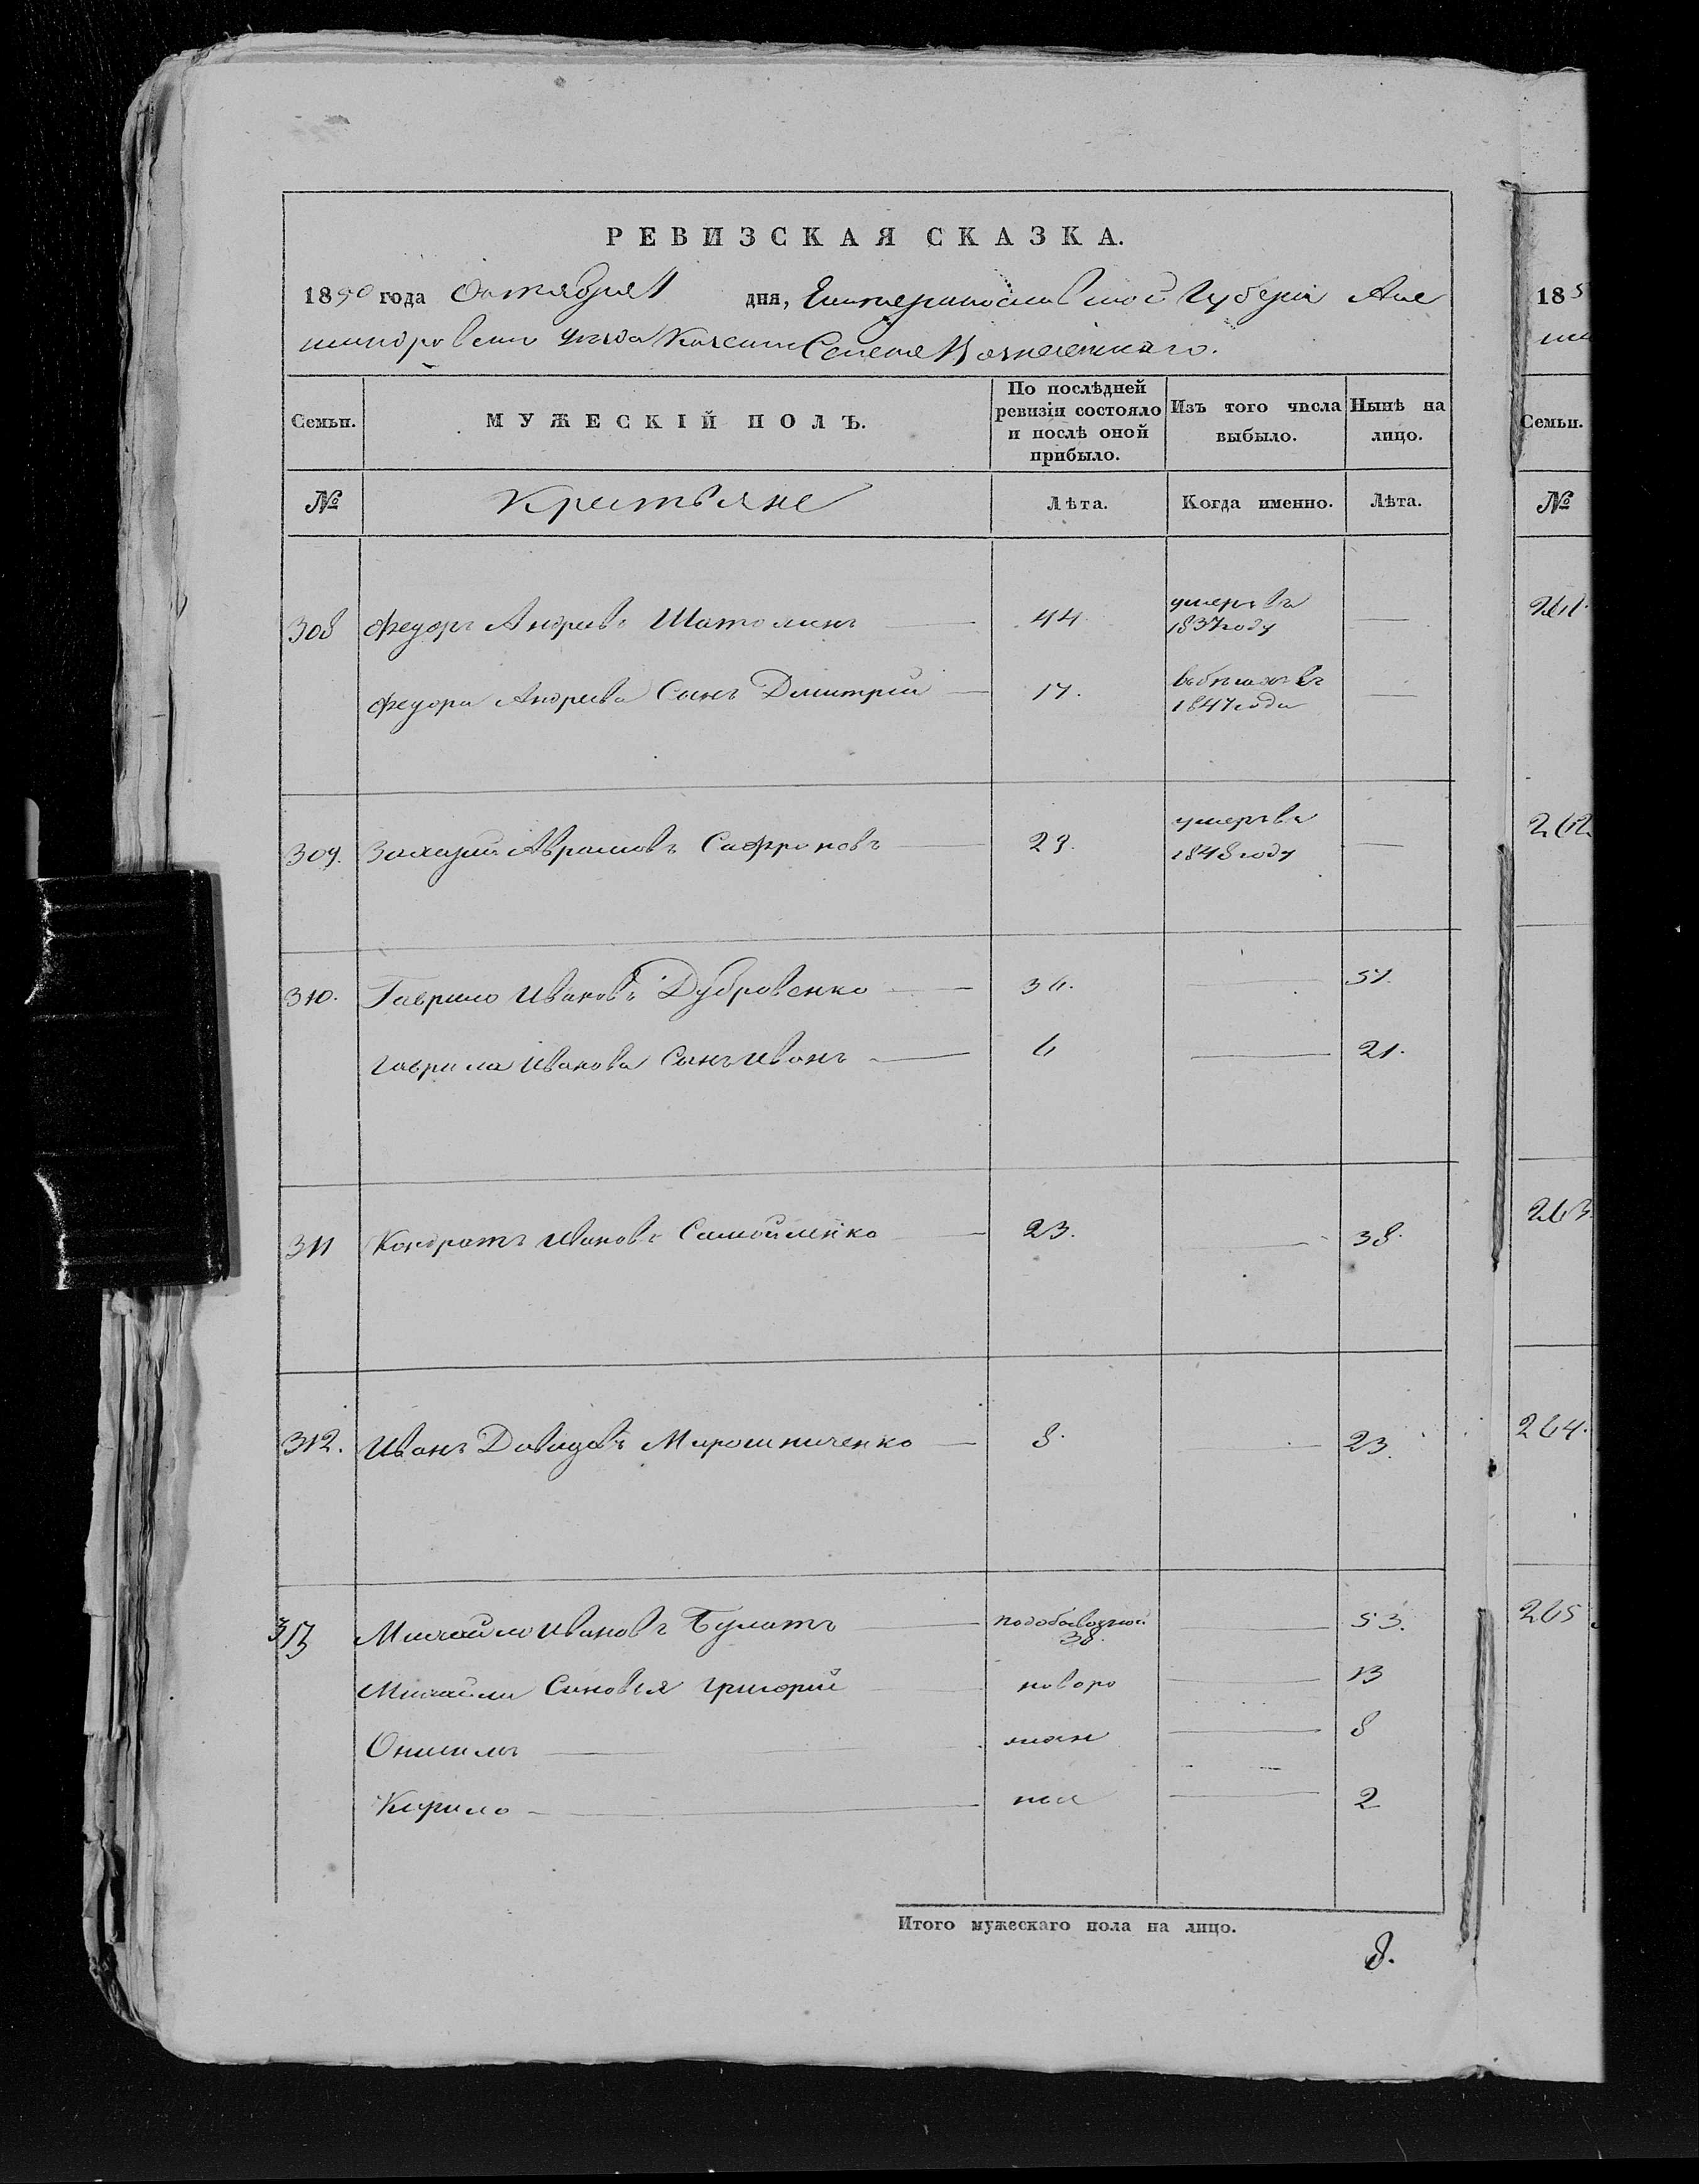 РЕВИЗСКАЯ СКАЗКА.
1850 года Октября 1 дня, Екатеринославской Губерніи Але
ксандровскаго уезда Села Вознесенскаго.
Семьи. МУЖЕСКІЙ ПОЛЪ. По послѣдней ревизіи состояло и послѣ оной прибыло. Изъ того числа выбыло. Нынѣ на лицо.
№ Крестьяне Лѣта. Когда именно. Лѣта.
308 Федоръ Андреевъ 44 умеръ въ 1837 году —
Федора Андреева Сынъ Дмитрій — 17. 1847 года —
309. Захарій Аврамовъ Сафроновъ — 29. умеръ въ 1848 году —
310. Гаврило Ивановъ Дубровенко — 36. — 51.
Гаврила Иванова Сынъ Иванъ — 6 — 21.
311 Кондратъ Ивановъ Самойленко — 23. — 38.
312. Иванъ Давидовъ Мирошниченко — 8. — 23.
313 Михайло Ивановъ Булатъ — 38. — 53.
Михайли Синовья Григорий — новоро — 13
— 8
Кирило — — 2
Итого мужескаго пола на лицо.
8.
185
Семьи.
№
261.
262
263.
264.
265